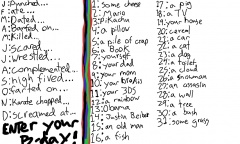 J:Punched...
F:ate...
M:Dated...
A:Barfed on...
M:Killed...
J:scared...
J:wrestled...
A:complemented...
S:high fived...
O:farted on...
N:Karate chopped...
D:screamed at...
Enter your
B-day!
1:some cheese
2:Mario
3:Pikachu
4:a pillow
5:a pile of crap
6:a Book
7:yourself
8:your dad
9:your mom
10:your
11:your 3DS
12:a rainbow
13:Obama
14:Justin Beiber
15:an old man
16:a fish
17:a pig
18:a TV
19:your house
20:cereal
21:a car
22:a cat
23:a dog
24:a toilet
25:a cloud
26:a snowman
27:an assassin
28:a wall
29:a tree
30:a bush
31:some grass